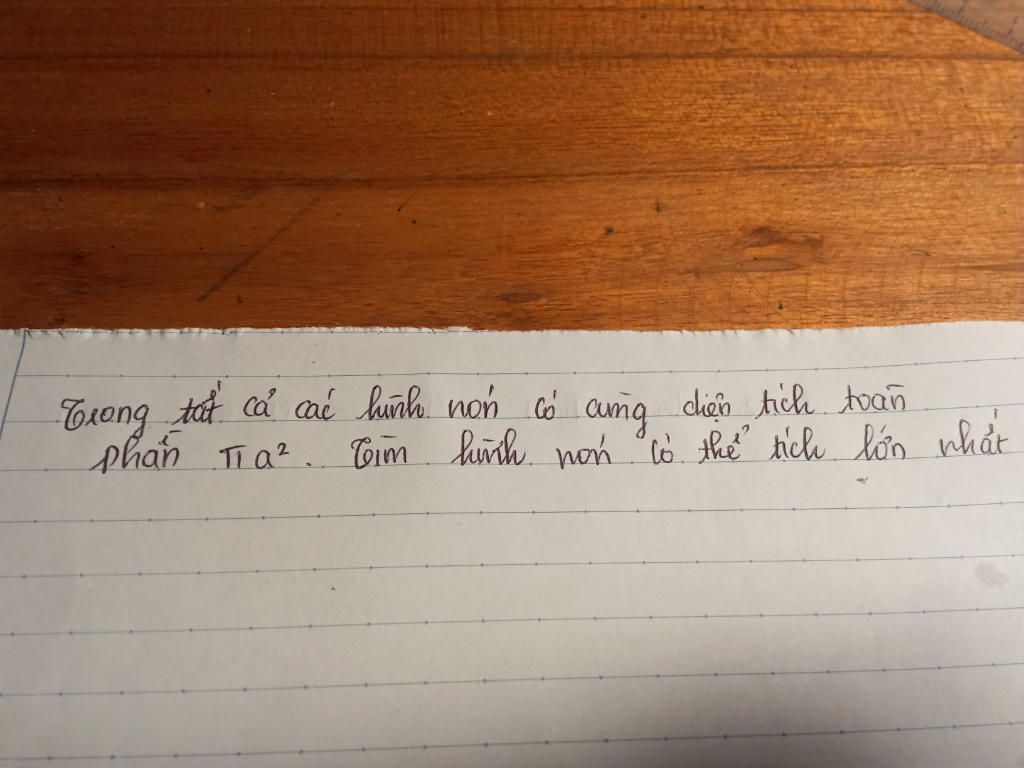 Trong tất cả các hình nón có cùng diện tích toàn
phần πa². Tìm hình nón có thể tích lớn nhất